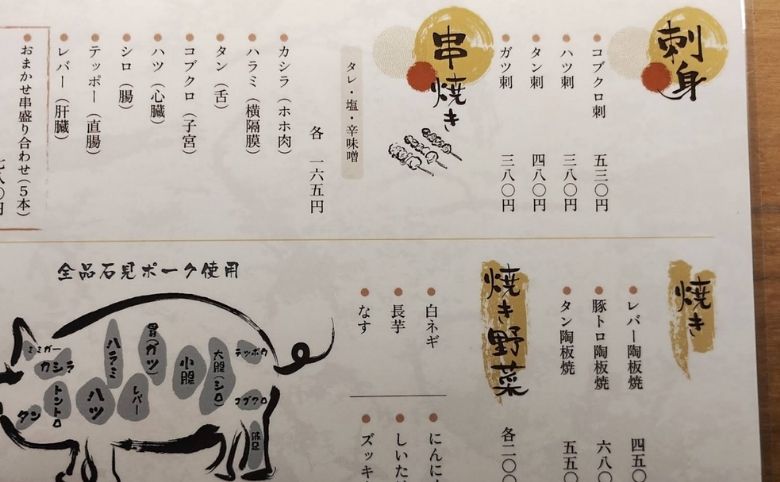 刺身
コブクロ刺 五三〇円
ハツ刺 三八〇円
タン刺 四八〇円
ガツ刺 三八〇円
串焼き
タレ・塩・辛味噌
各 一六五円
カシラ（ホホ肉）
ハラミ（横隔膜）
タン（舌）
コブクロ（子宮）
ハツ（心臓）
シロ（腸）
テッポー（直腸）
レバー（肝臓）
おまかせ串盛り合わせ（5本）
七八〇円
焼き
レバー陶板焼 四五〇
豚トロ陶板焼 六八〇
タン陶板焼 五五〇
焼き野菜
各二〇〇
白ネギ
長芋
なす
にんに
しいた
ズッキ
全品石見ポーク使用
ミミガー
カシラ
タン
トントロ
ハラミ
ハツ
胃（ガツ）
レバー
小腸
大腸（シロ）
テッポウ
コブクロ
豚足